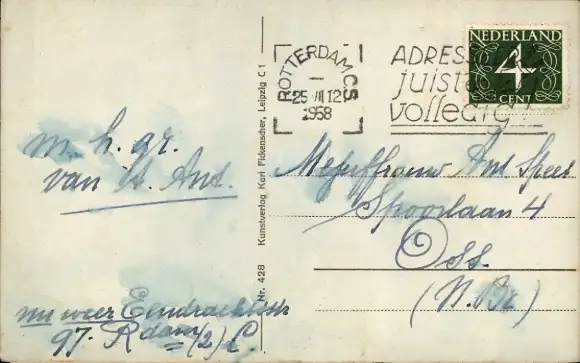 m. h. gr.
van t. Ant.
nu weer Eendrachtstr
97. Rdam (2) C.
Nr. 428 Kunstverlag Karl Fickenscher, Leipzig C 1
ROTTERDAM CS
25 VII 12
1958
ADRES
juist
volledig
NEDERLAND
4
CENT
Mejuffrouw Ant Speet
Spoorlaan 4
Oss.
(N. Br.)